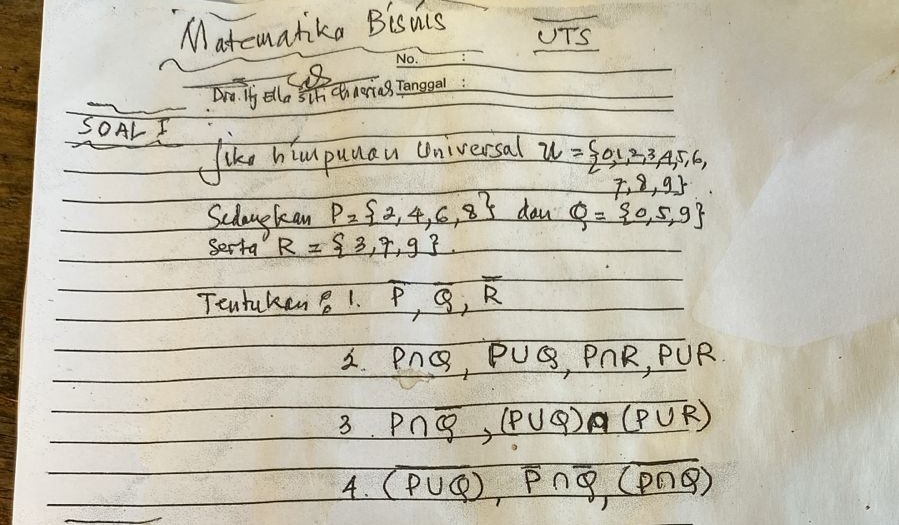 Matematika Bisnis UTS
No. :
Dra. Hj Ella Siti Chaerias Tanggal :
SOAL I :
Jika himpunan Universal U = {0,1,2,3,4,5,6,
7,8,9}.
Sedangkan P = {2,4,6,8} dan Q = {0,5,9}
Serta R = {3,7,9}.
Tentukan : 1. P̅, Q̅, R̅
2. P∩Q, P∪Q, P∩R, P∪R.
3. P∩Q̅, (P∪Q)∩(P∪R)
4. (P̅∪̅Q̅), P̅∩Q̅, (P̅∩̅Q̅)